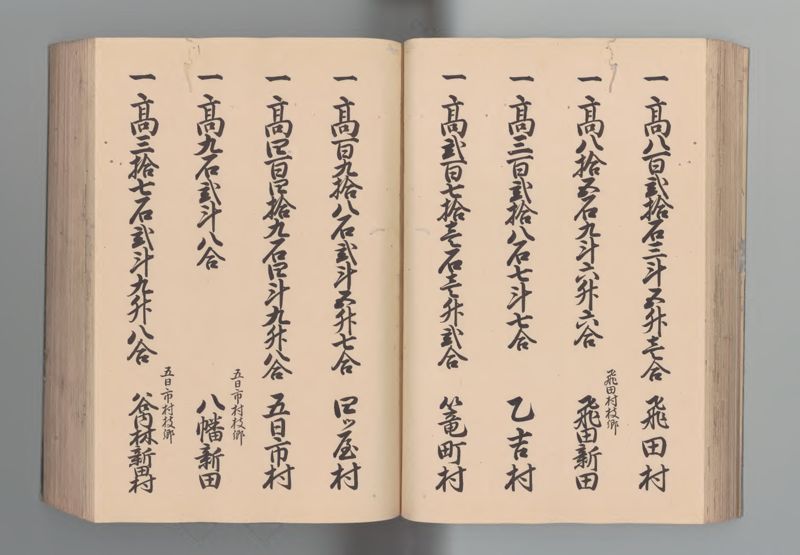 一 高八百弐拾石三斗五升壱合 飛田村
飛田村枝郷
一 高八拾五石九斗六升六合 飛田新田
一 高三百弐拾八石七斗七合 乙吉村
一 高弐百七拾壱石壱升弐合 篭町村
一 高百九拾八石弐斗五升七合 四ッ屋村
一 高四百四拾九石四斗九升八合 五日市村
五日市村枝郷
一 高九石弐斗八合 八幡新田
五日市村枝郷
一 高三拾七石弐斗九升八合 谷内林新田村